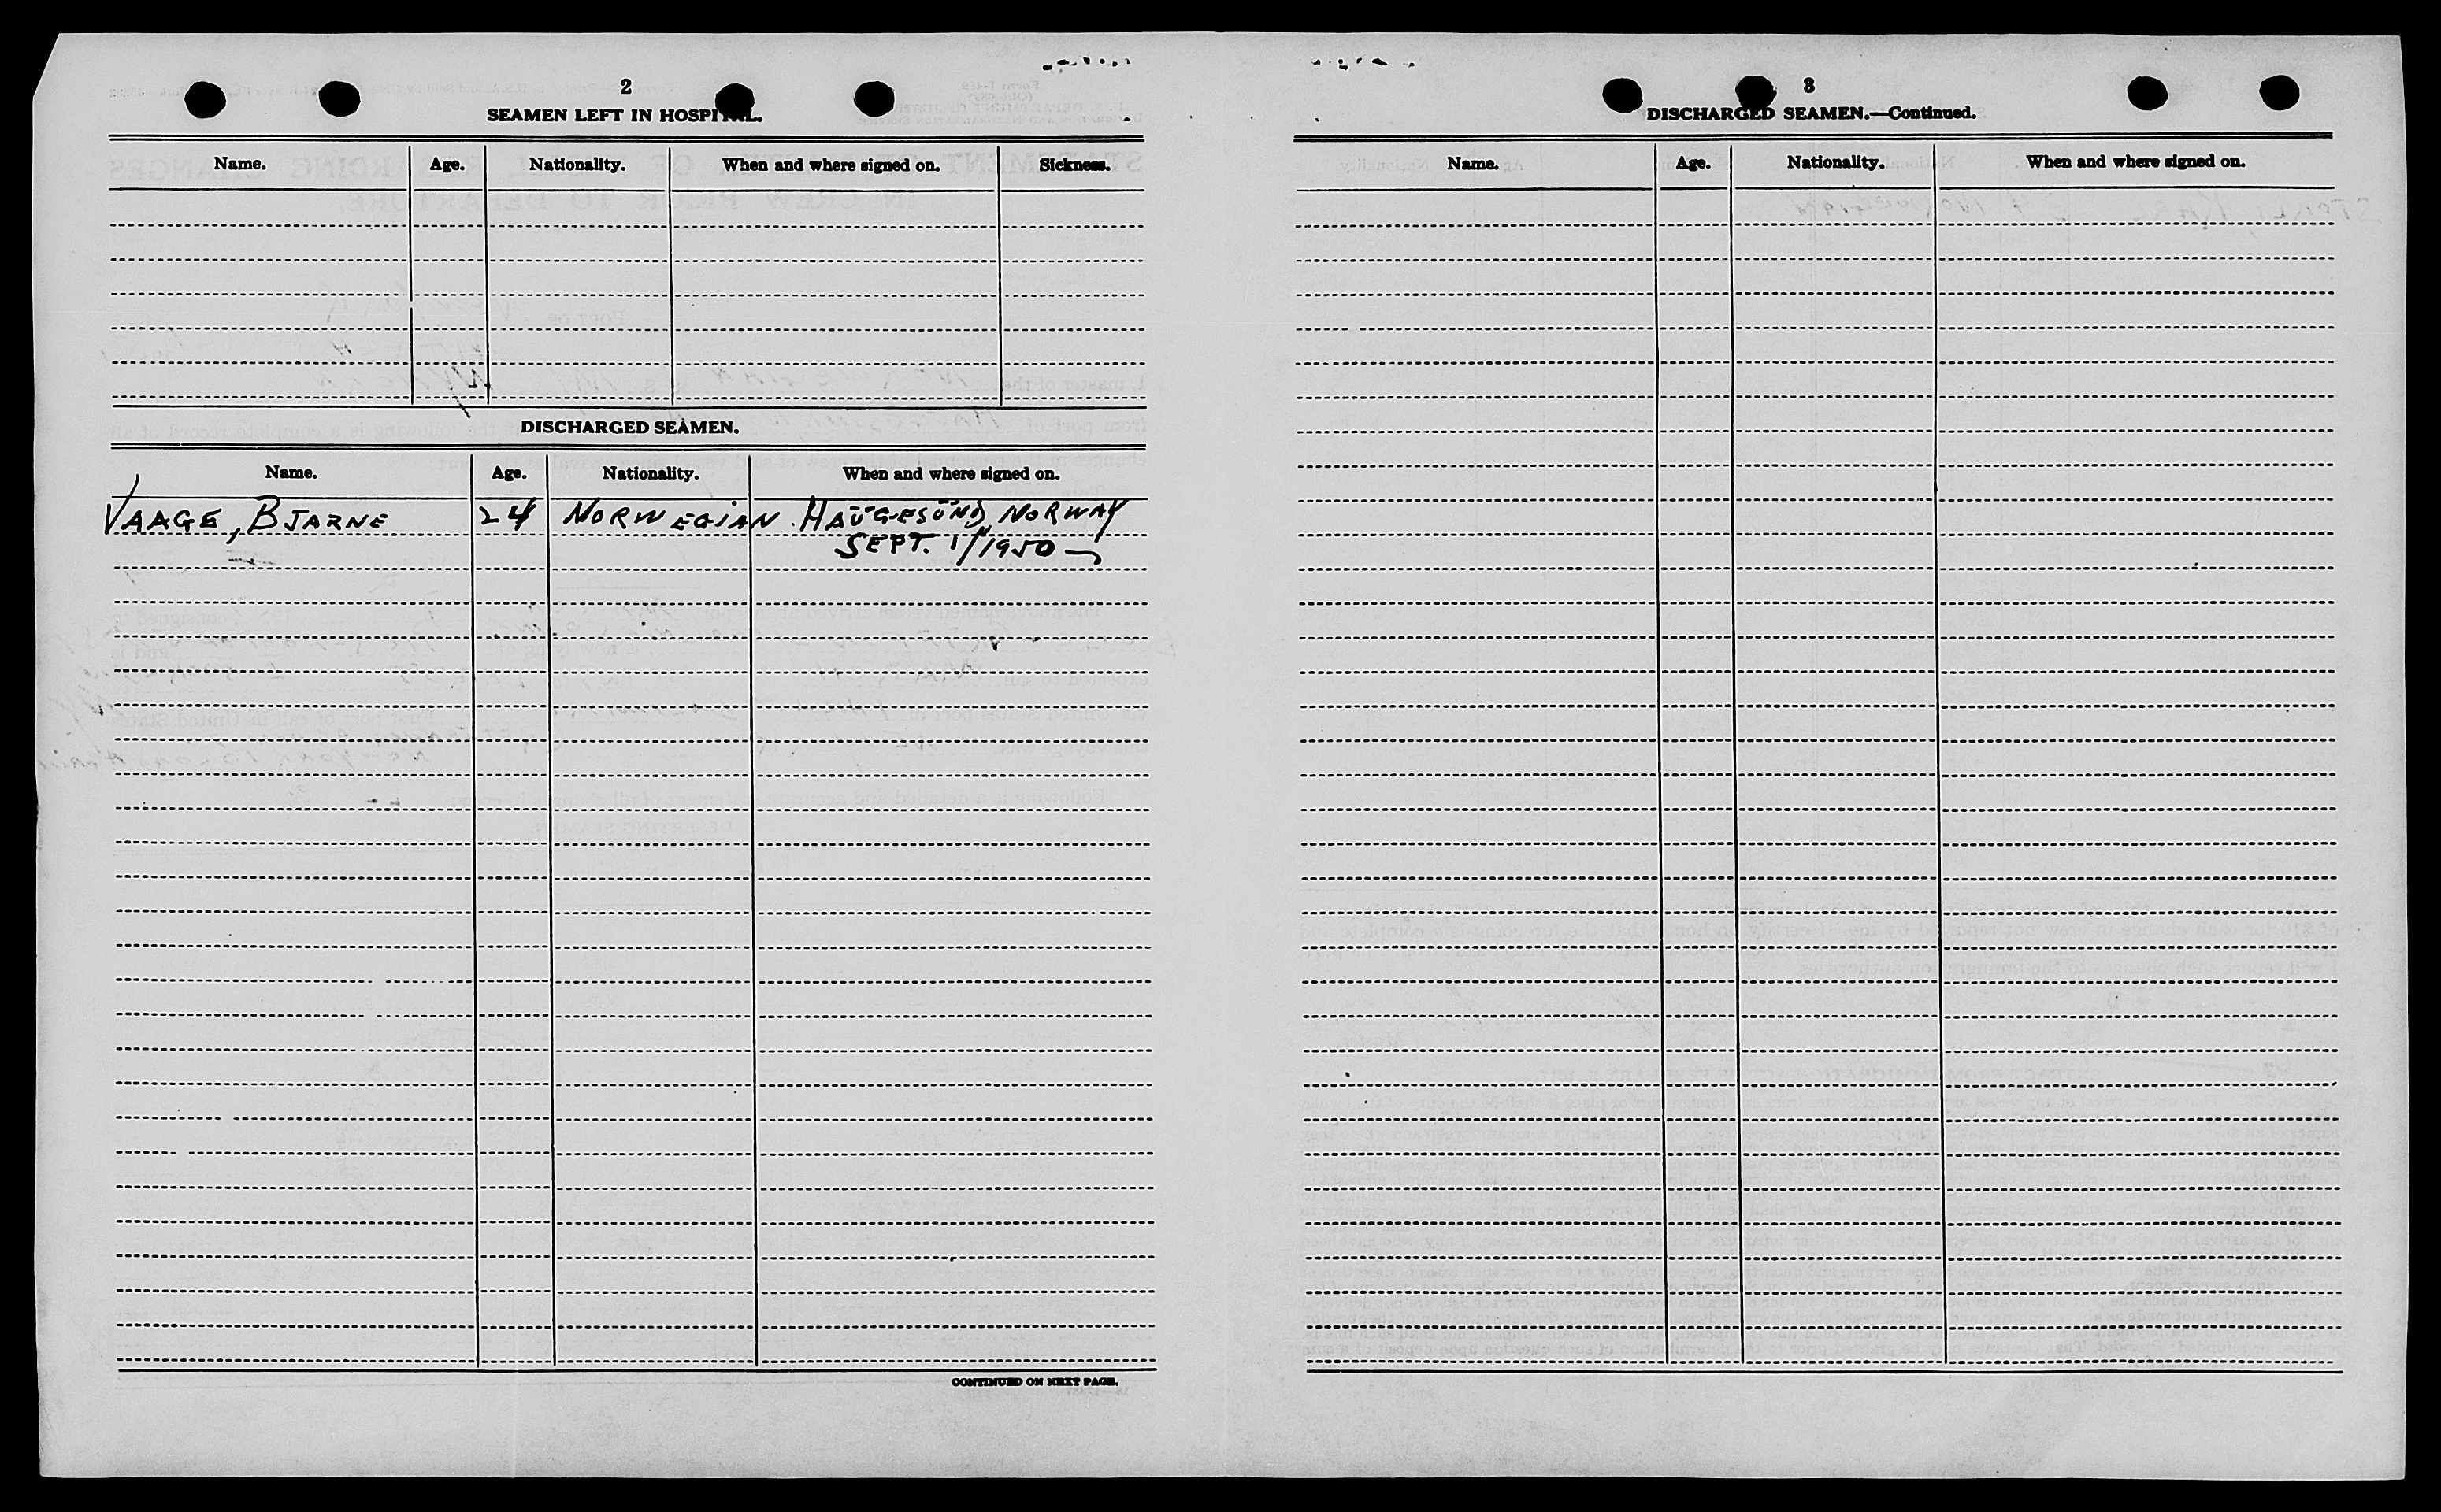 2
SEAMEN LEFT IN HOSPITAL.
Name. Age. Nationality. When and where signed on. Sickness.
DISCHARGED SEAMEN.
Name. Age. Nationality. When and where signed on.
VAAGE, BJARNE 24 NORWEGIAN. HAUGESUND, NORWAY
SEPT. 1/1950
CONTINUED ON NEXT PAGE.
3
DISCHARGED SEAMEN.—Continued.
Name. Age. Nationality. When and where signed on.